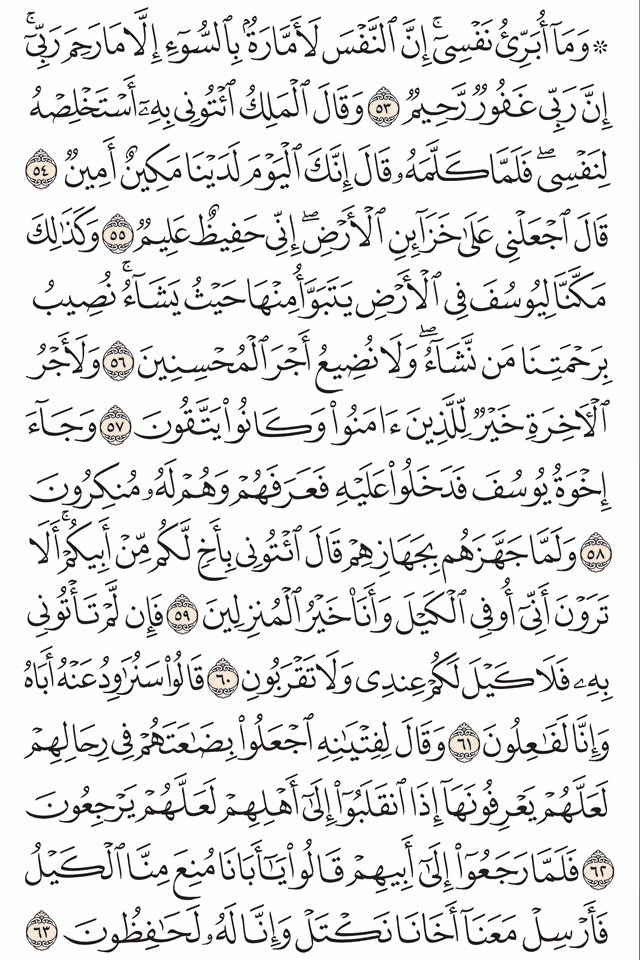 ۞ وَمَآ أُبَرِّئُ نَفْسِىٓۚ إِنَّ ٱلنَّفْسَ لَأَمَّارَةُۢ بِٱلسُّوٓءِ إِلَّا مَا رَحِمَ رَبِّىٓۚ
إِنَّ رَبِّى غَفُورٌ رَّحِيمٌ ٥٣ وَقَالَ ٱلْمَلِكُ ٱئْتُونِى بِهِۦٓ أَسْتَخْلِصْهُ
لِنَفْسِىۖ فَلَمَّا كَلَّمَهُۥ قَالَ إِنَّكَ ٱلْيَوْمَ لَدَيْنَا مَكِينٌ أَمِينٌ ٥٤
قَالَ ٱجْعَلْنِى عَلَىٰ خَزَآئِنِ ٱلْأَرْضِۖ إِنِّى حَفِيظٌ عَلِيمٌ ٥٥ وَكَذَٰلِكَ
مَكَّنَّا لِيُوسُفَ فِى ٱلْأَرْضِ يَتَبَوَّأُ مِنْهَا حَيْثُ يَشَآءُۚ نُصِيبُ
بِرَحْمَتِنَا مَن نَّشَآءُۖ وَلَا نُضِيعُ أَجْرَ ٱلْمُحْسِنِينَ ٥٦ وَلَأَجْرُ
ٱلْأَخِرَةِ خَيْرٌ لِّلَّذِينَ ءَامَنُوا۟ وَكَانُوا۟ يَتَّقُونَ ٥٧ وَجَآءَ
إِخْوَةُ يُوسُفَ فَدَخَلُوا۟ عَلَيْهِ فَعَرَفَهُمْ وَهُمْ لَهُۥ مُنكِرُونَ
٥٨ وَلَمَّا جَهَّزَهُم بِجَهَازِهِمْ قَالَ ٱئْتُونِى بِأَخٍ لَّكُم مِّنْ أَبِيكُمْۚ أَلَا
تَرَوْنَ أَنِّىٓ أُوفِى ٱلْكَيْلَ وَأَنَا۠ خَيْرُ ٱلْمُنزِلِينَ ٥٩ فَإِن لَّمْ تَأْتُونِى
بِهِۦ فَلَا كَيْلَ لَكُمْ عِندِى وَلَا تَقْرَبُونِ ٦٠ قَالُوا۟ سَنُرَٰوِدُ عَنْهُ أَبَاهُ
وَإِنَّا لَفَٰعِلُونَ ٦١ وَقَالَ لِفِتْيَٰنِهِ ٱجْعَلُوا۟ بِضَٰعَتَهُمْ فِى رِحَالِهِمْ
لَعَلَّهُمْ يَعْرِفُونَهَآ إِذَا ٱنقَلَبُوٓا۟ إِلَىٰٓ أَهْلِهِمْ لَعَلَّهُمْ يَرْجِعُونَ
٦٢ فَلَمَّا رَجَعُوٓا۟ إِلَىٰٓ أَبِيهِمْ قَالُوا۟ يَٰٓأَبَانَا مُنِعَ مِنَّا ٱلْكَيْلُ
فَأَرْسِلْ مَعَنَآ أَخَانَا نَكْتَلْ وَإِنَّا لَهُۥ لَحَٰفِظُونَ ٦٣